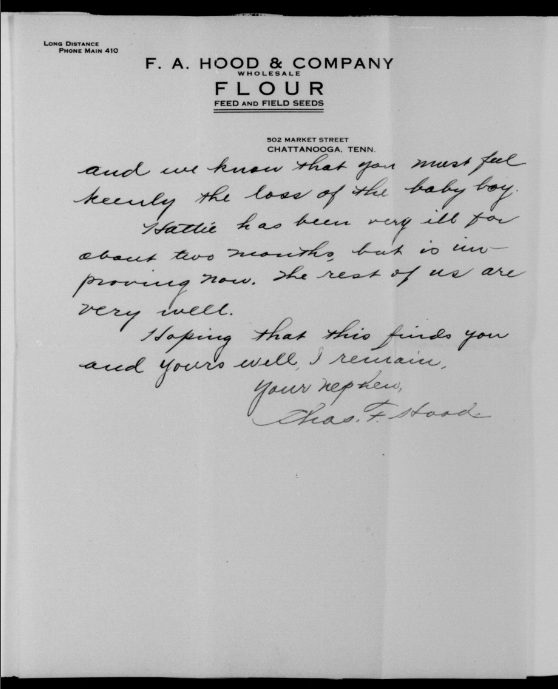 LONG DISTANCE
PHONE MAIN 410
F. A. HOOD & COMPANY
WHOLESALE
FLOUR
FEED AND FIELD SEEDS
502 MARKET STREET
CHATTANOOGA, TENN.
and we know that you must feel
keenly the loss of the baby boy.
Hattie has been very ill for
about two months, but is im-
proving now. The rest of us are
very well.
Hoping that this finds you
and yours well, I remain,
Your nephew,
Chas. F. Hood.